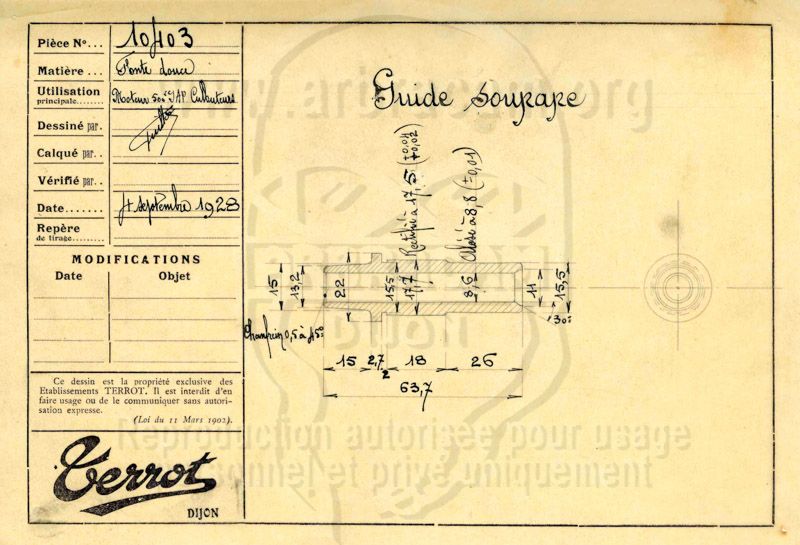 Pièce N°... 10403
Matière... Fonte douce
Utilisation principale........ Moteur 500 JAP Culbuteurs
Dessiné par.
Calqué par..
Vérifié par..
Date........ 4 Septembre 1928
Repère de tirage..........
MODIFICATIONS
Date Objet
Ce dessin est la propriété exclusive des
Etablissements TERROT. Il est interdit d'en
faire usage ou de le communiquer sans autori-
sation expresse.
(Loi du 11 Mars 1902).
Terrot
DIJON
Guide soupape
Rectifié à 17,5 (+0,04 +0,02)
Alésé à 8,8 (±0,01)
15 13,2 22 15,5 17,7 8,6 11 15,5
30°
Chanfrein 0,5 à 45°
15 2,7 2 18 26
63,7
www. .org
Dijon
Reproduction autorisée pour usage
personnel et privé uniquement